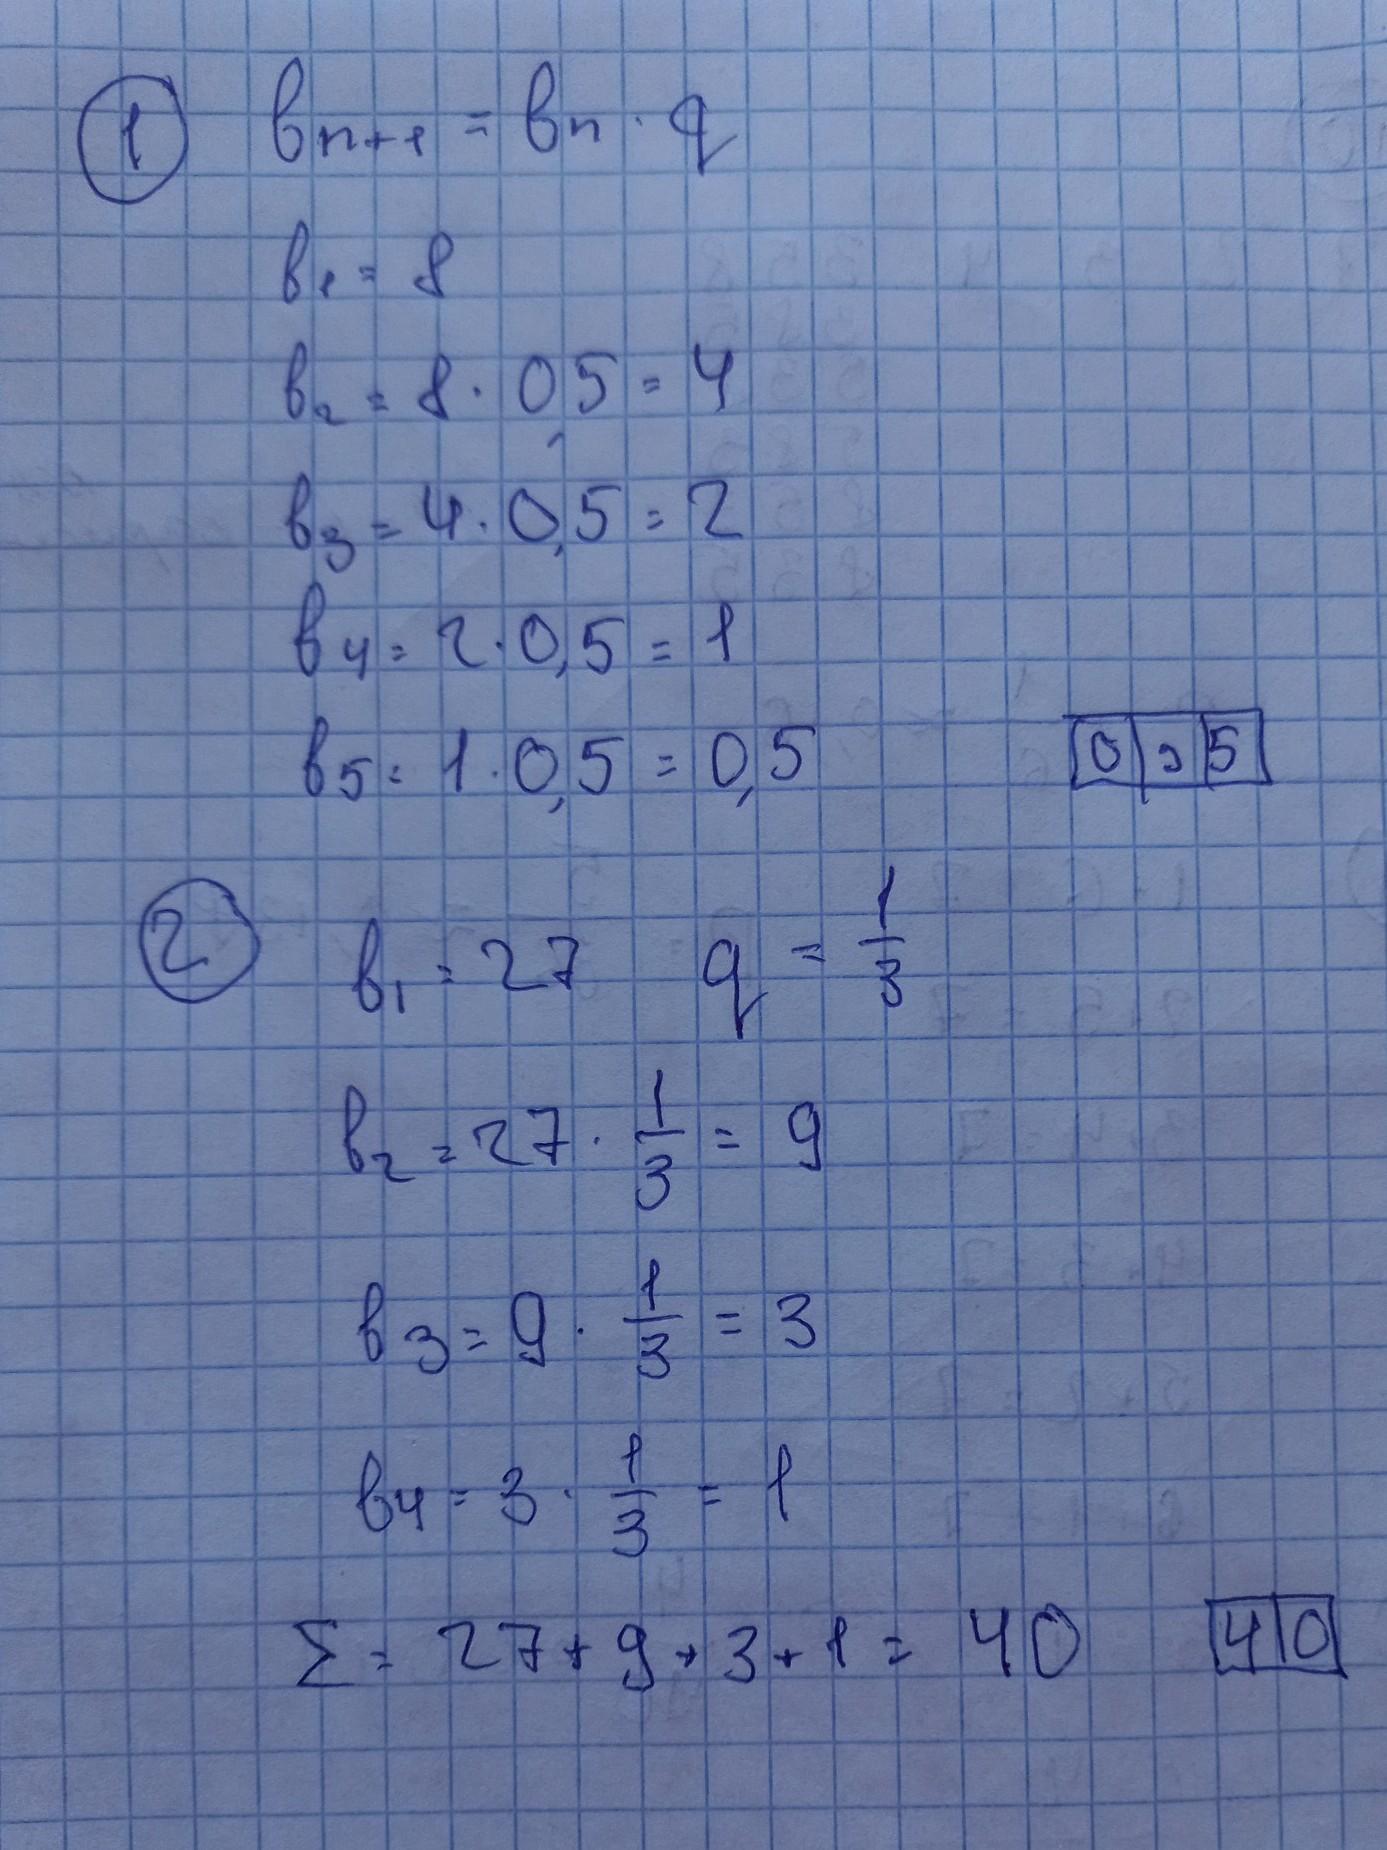 1 bn+1 = bn · q
b1 = 8
b2 = 8 · 0,5 = 4
b3 = 4 · 0,5 = 2
b4 = 2 · 0,5 = 1
b5 = 1 · 0,5 = 0,5 0,5
2 b1 = 27 q = 1/3
b2 = 27 · 1/3 = 9
b3 = 9 · 1/3 = 3
b4 = 3 · 1/3 = 1
Σ = 27 + 9 + 3 + 1 = 40 40